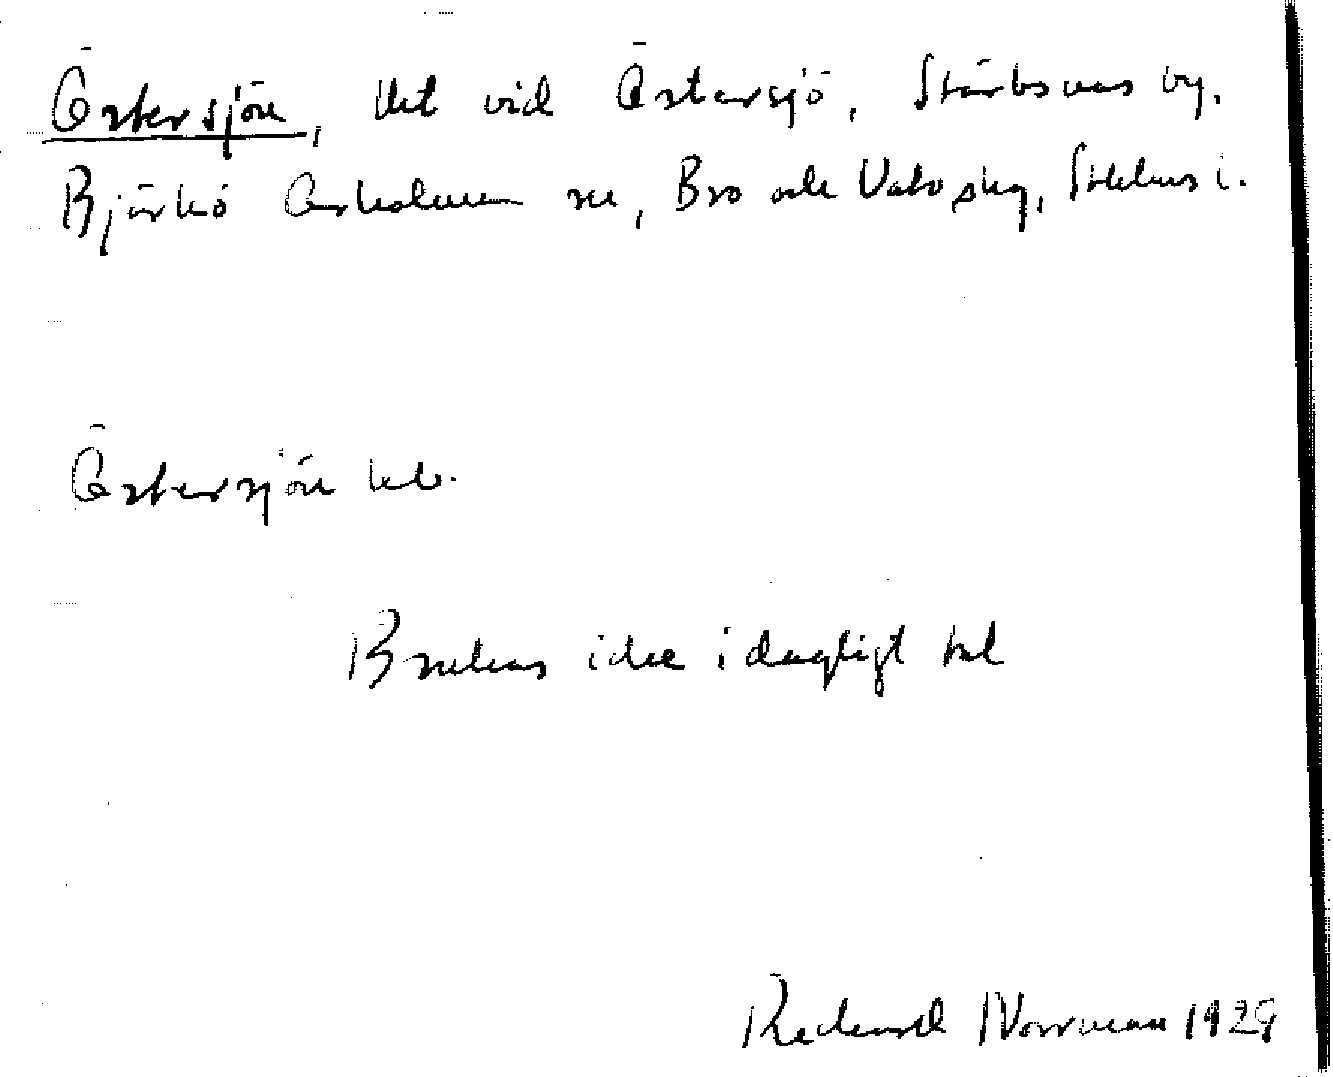 Östersjön, Vet vid Östersjö, Stärbsnäs by.
Björkö Arholma sn, Bro och Vätö skg, Sthlms l.
Östersjön
Brukas icke i dagligt tal
Richard Norrman 1929